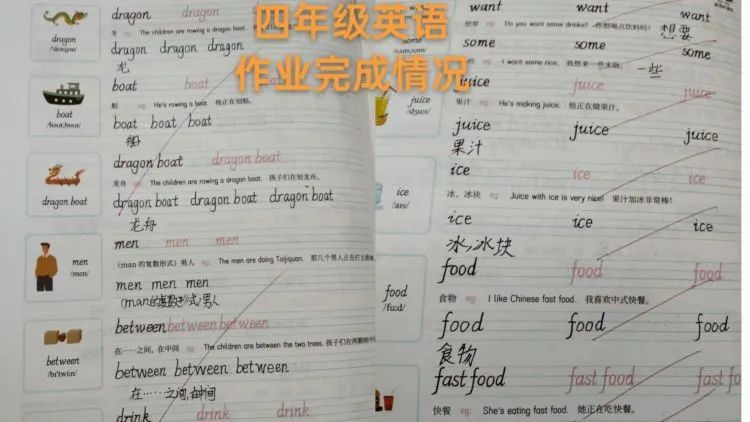 四年级英语
作业完成情况
dragon dragon dragon
dragon
/'drægən/
龙 eg: The children are rowing a dragon boat.
dragon dragon dragon
龙
boat boat boat
船 eg: He's rowing a boat. 他正在划船。
boat
boat boat boat
船
dragon boat dragon boat
龙舟 eg: The children are rowing a dragon boat. 孩子们在划龙舟。
dragon boat
dragon boat dragon boat dragon boat
龙舟
men men men
men
/men/
(man 的复数形式) 男人 eg: The men are doing Taijiquan.
men men men
(man的复数形式)男人
between between between
在……之间, 在中间 eg: The children are between the two trees.
between
/bɪ'twiːn/
between between between
在……之间,在中间
drink drink drink
want want want
想要 eg: Do you want some drinks? 你想喝点饮料吗?
想要
some some some
eg: I want some rice. 我想来一些米饭。
一些
juice juice juice
juice
/dʒuːs/
果汁 eg: He's making juice. 他正在做果汁。
juice juice juice
果汁
ice ice ice
ice
/aɪs/
冰, 冰块 eg: Juice with ice is very nice! 果汁加冰非常棒!
ice ice ice
冰,冰块
food food food
food
/fuːd/
食物 eg: I like Chinese fast food. 我喜欢中式快餐。
food food food
食物
fast food fast food fast fo
快餐 eg: She's eating fast food. 她正在吃快餐。